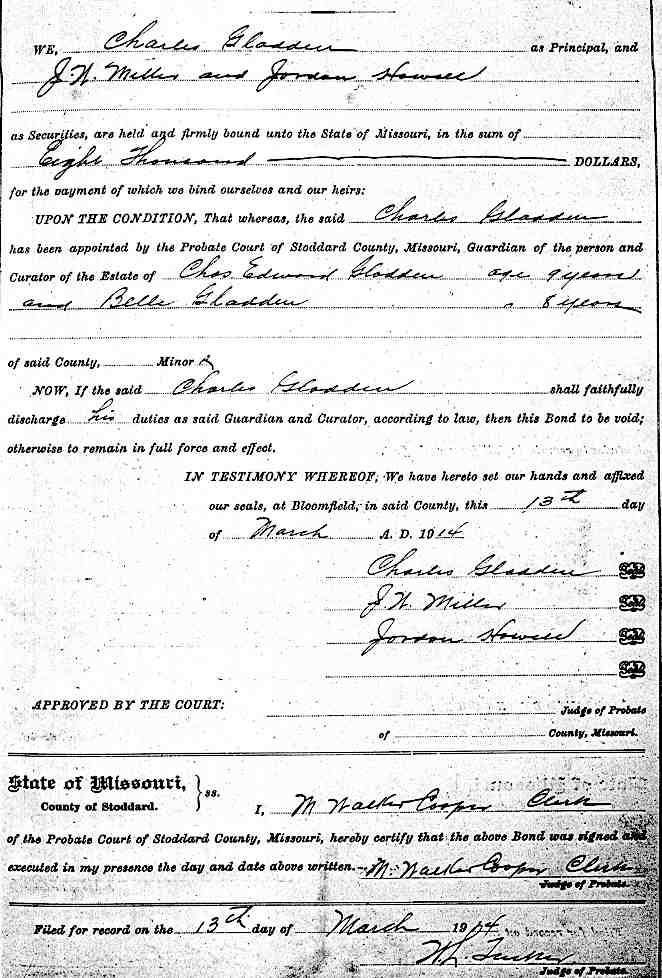 WE, Charles Gladden as Principal, and
J. W. Miller and Jordan Howell
as Securities, are held and firmly bound unto the State of Missouri, in the sum of
Eight Thousand DOLLARS,
for the payment of which we bind ourselves and our heirs:
UPON THE CONDITION, That whereas, the said Charles Gladden
has been appointed by the Probate Court of Stoddard County, Missouri, Guardian of the person and
Curator of the Estate of Chas Edward Gladden age 9 years
and Belle Gladden " 8 years
of said County, Minors
NOW, If the said Charles Gladden shall faithfully
discharge his duties as said Guardian and Curator, according to law, then this Bond to be void;
otherwise to remain in full force and effect.
IN TESTIMONY WHEREOF, We have hereto set our hands and affixed
our seals, at Bloomfield, in said County, this 13th day
of March A. D. 1914
Charles Gladden Seal
J. W. Miller Seal
Jordan Howell Seal
Seal
APPROVED BY THE COURT:
Judge of Probate
of County, Missouri.
State of Missouri,
County of Stoddard. } ss.
I, M Walker Cooper Clerk
of the Probate Court of Stoddard County, Missouri, hereby certify that the above Bond was signed and
executed in my presence the day and date above written. M. Walker Cooper Clerk
Judge of Probate.
Filed for record on the 13th day of March 1914
Tucker
Judge of Probate.